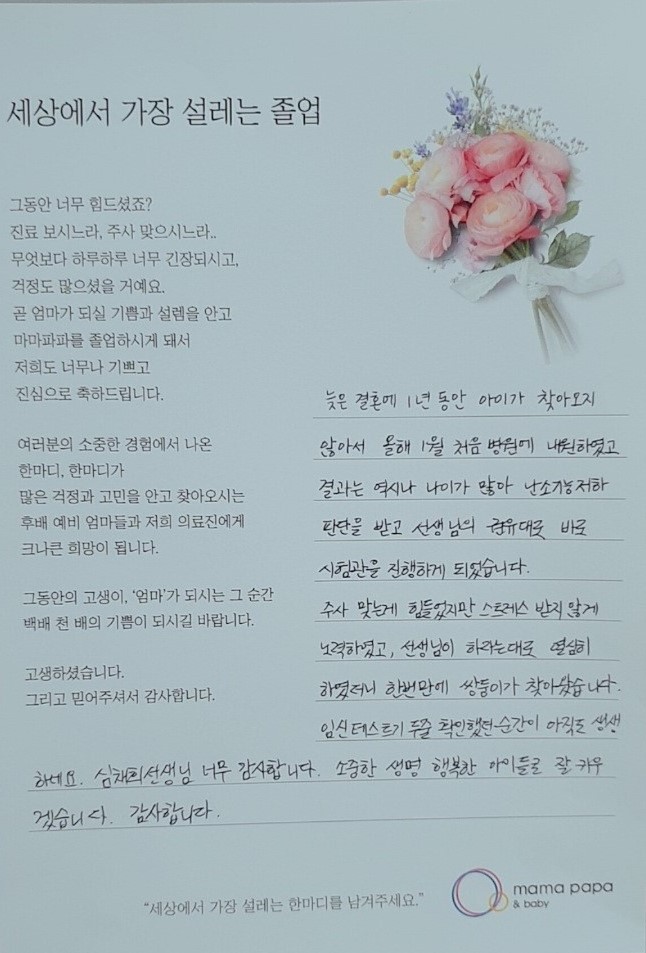 세상에서 가장 설레는 졸업
그동안 너무 힘드셨죠?
진료 보시느라, 주사 맞으시느라..
무엇보다 하루하루 너무 긴장되시고,
걱정도 많으셨을 거예요.
곧 엄마가 되실 기쁨과 설렘을 안고
마마파파를 졸업하시게 돼서
저희도 너무나 기쁘고
진심으로 축하드립니다.
여러분의 소중한 경험에서 나온
한마디, 한마디가
많은 걱정과 고민을 안고 찾아오시는
후배 예비 엄마들과 저희 의료진에게
크나큰 희망이 됩니다.
그동안의 고생이, '엄마'가 되시는 그 순간
백배 천 배의 기쁨이 되시길 바랍니다.
고생하셨습니다.
그리고 믿어주셔서 감사합니다.
늦은 결혼에 1년 동안 아이가 찾아오지
않아서 올해 1월 처음 병원에 내원하였고
결과는 역시나 나이가 많아 난소기능저하
판단을 받고 선생님의 권유대로 바로
시험관을 진행하게 되었습니다.
주사 맞는게 힘들었지만 스트레스 받지 않게
노력하였고, 선생님이 하라는대로 열심히
하였더니 한번만에 쌍둥이가 찾아왔습니다.
임신테스트기 두줄 확인했던 순간이 아직도 생생
하네요. 심채희선생님 너무 감사합니다. 소중한 생명 행복한 아이들로 잘 키우
겠습니다. 감사합니다.
"세상에서 가장 설레는 한마디를 남겨주세요."
mama papa
& baby